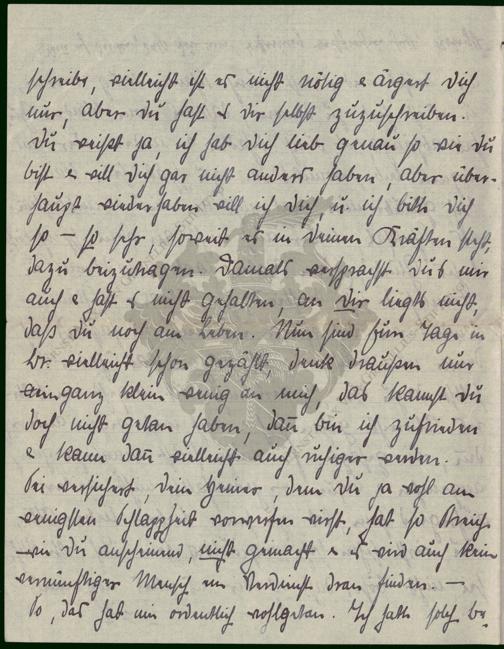 schreibe, vielleicht ist es nicht nötig & ärgert Dich
nur, aber Du hast es Dir selbst zuzuschreiben.
Du weißt ja, ich hab Dich lieb genau so wie Du
bist & will Dich gar nicht anders haben, aber über-
haupt wiederhaben will ich Dich, u. ich bitte Dich
so – so sehr, soweit es in Deinen Kräften steht,
dazu beizutragen. Damals versprachst Du's mir
auch & hast es nicht gehalten, an Dir liegts nicht,
daß Du noch am Leben. Nun sind Eure Tage in
Br. vielleicht schon gezählt, denk draußen nur
ein ganz klein wenig an mich, das kannst Du
doch nicht getan haben, dañ bin ich zufrieden
& kann dañ vielleicht auch ruhiger werden.
Sei versichert, Dein, dem Du ja wohl am
wenigsten Schlappheit vorwerfen wirst, hat so
wie Du anscheinend, nicht gemacht & es wird auch kein
vernünftiger Mensch ein Verdienst dran finden. –
So, das hat mir ordentlich wohlgetan. Ich hatte solch be-